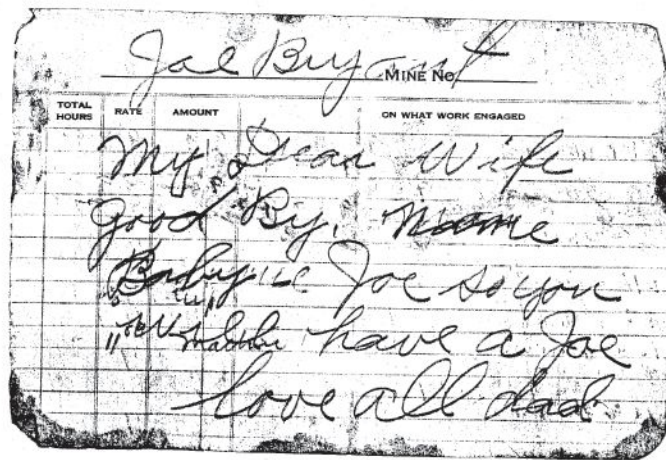 Joe Bryant
MINE No.
TOTAL HOURS RATE AMOUNT ON WHAT WORK ENGAGED
My Dear Wife
Good By. Name
Baby Joe so you
will have a Joe
love all dad